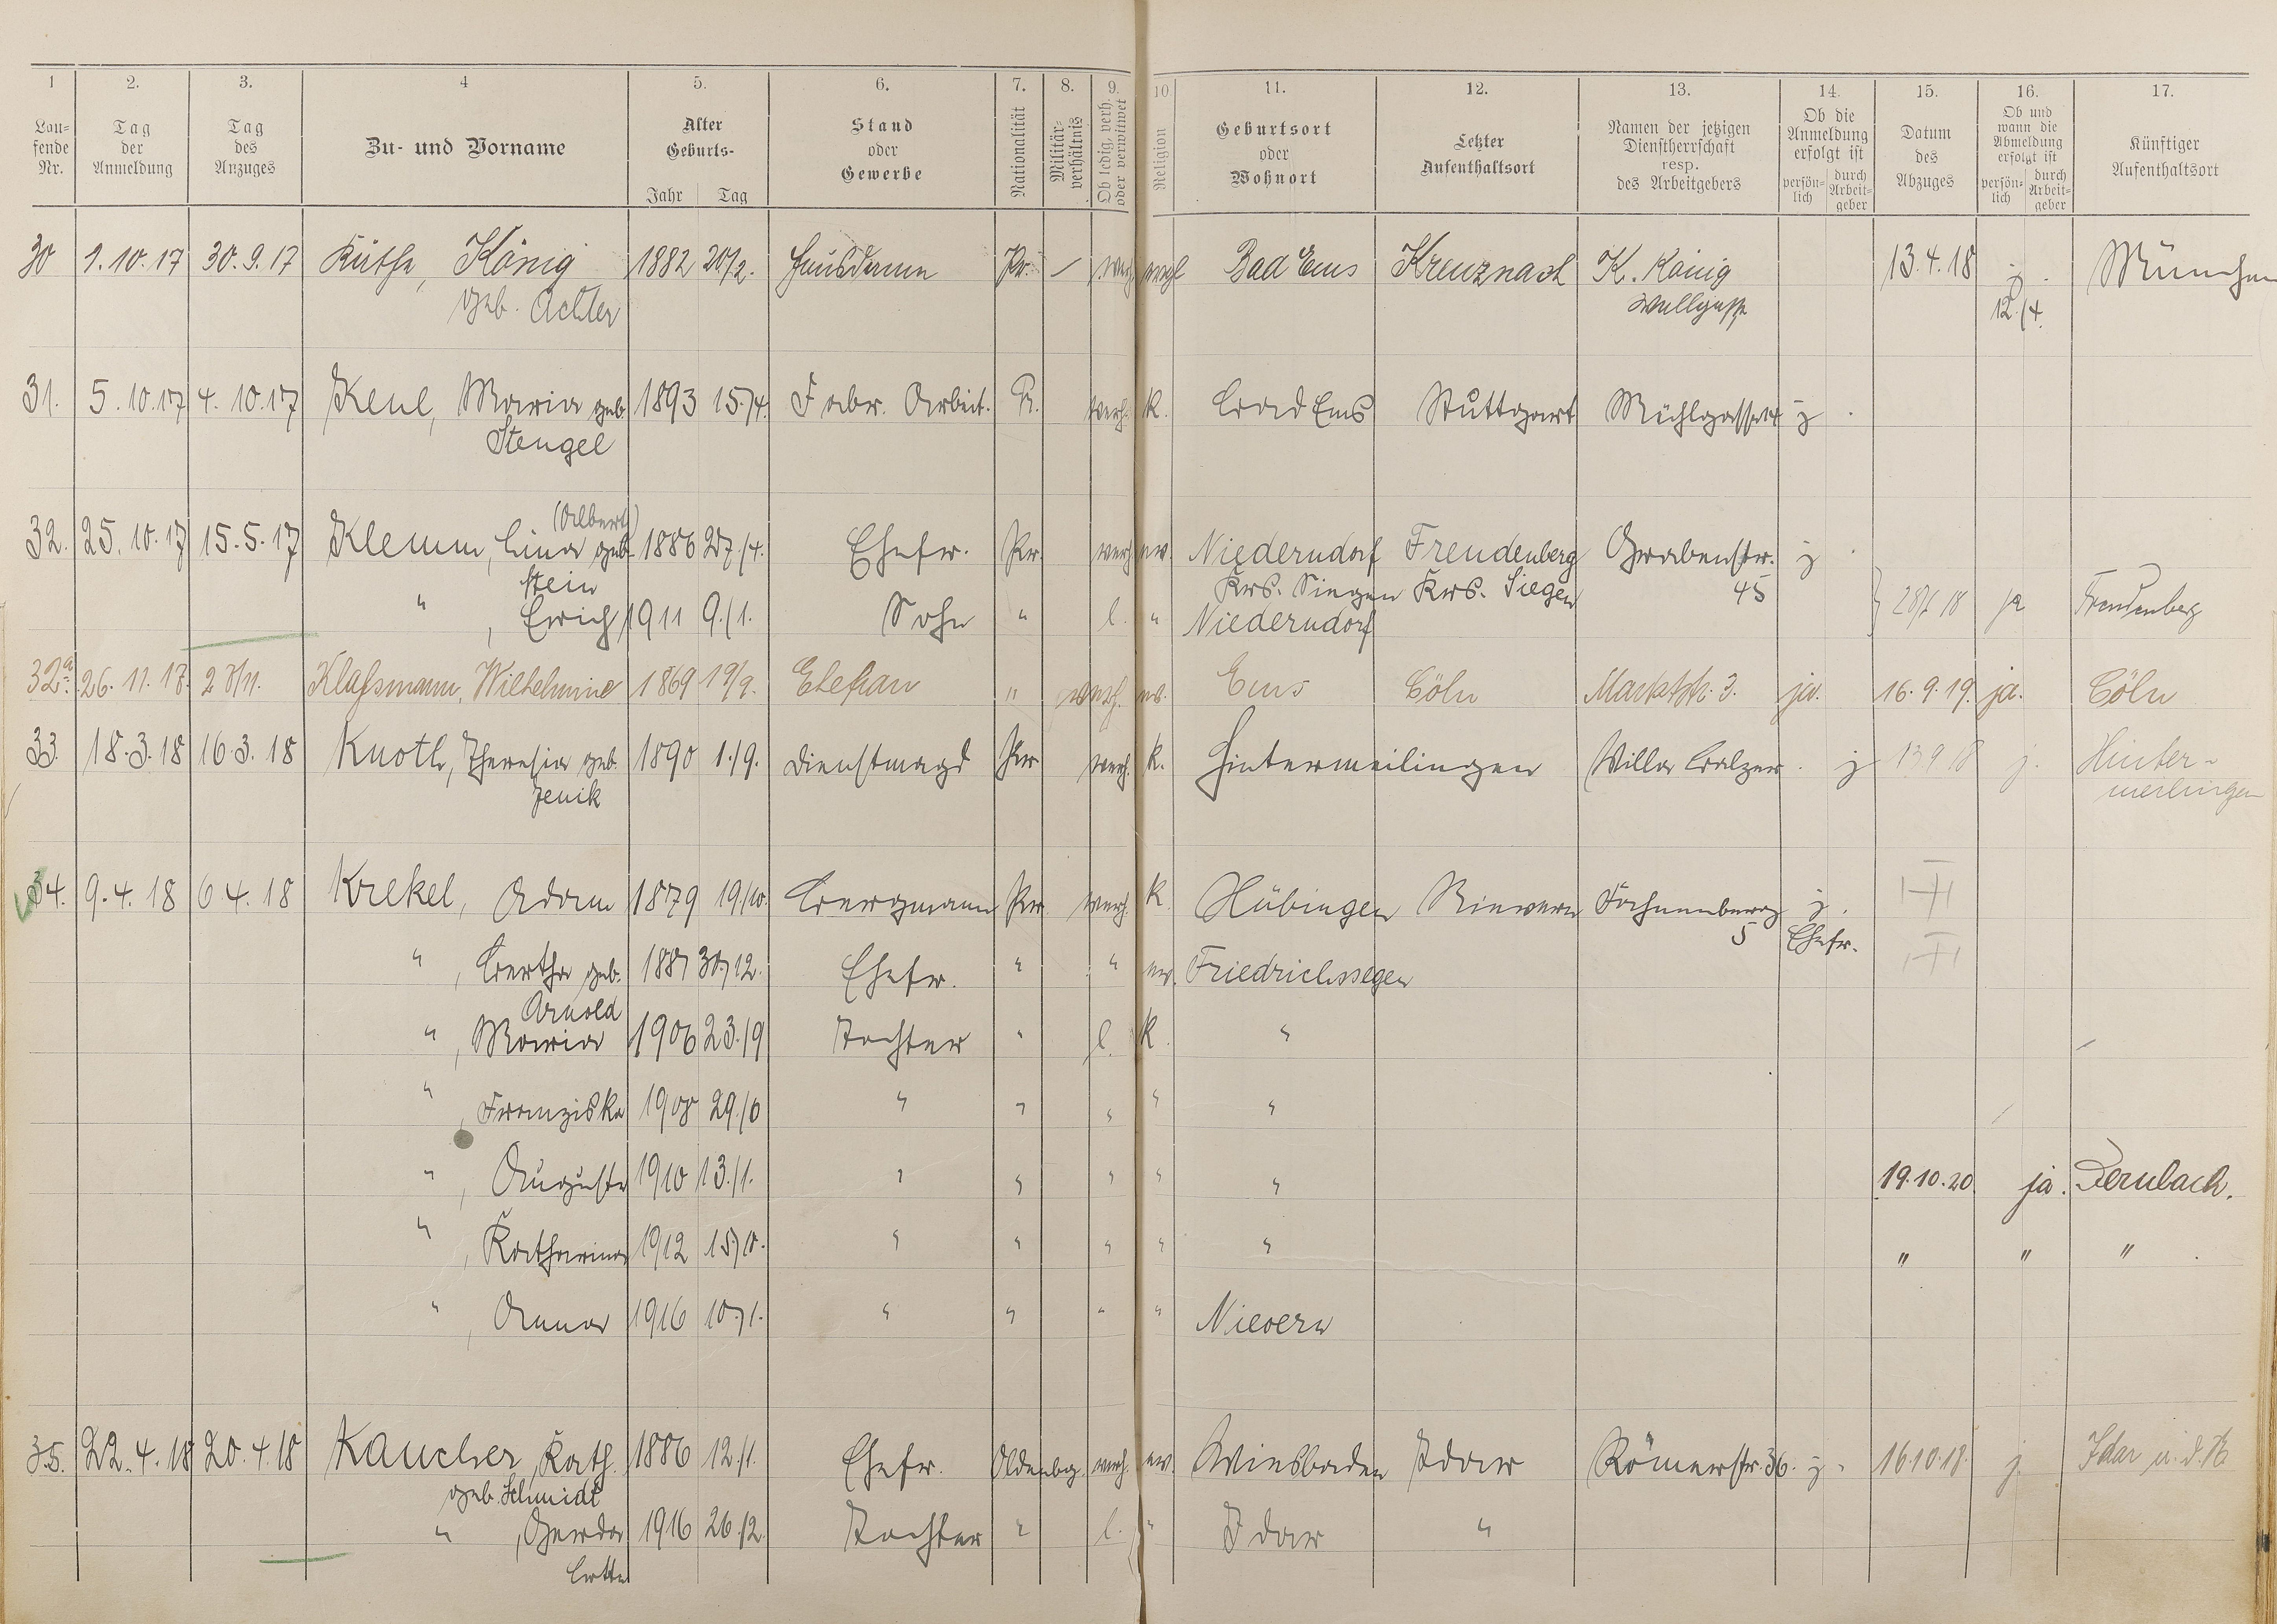 1 2. 3. 4 5. 6. 7. 8. 9. 10. 11. 12. 13. 14. 15. 16. 17.
Lau-fende Nr. Tag der Anmeldung Tag des Anzuges Zu- und Vorname Alter Geburts- Jahr Tag Stand oder Gewerbe Nationalität Militär-verhältnis Ob ledig, verh. oder verwitwet Religion Geburtsort oder Wohnort Letzter Aufenthaltsort Namen der jetzigen Dienstherrschaft resp. des Arbeitgebers Ob die Anmeldung erfolgt ist persön-lich durch Arbeit-geber Datum des Abzuges Ob und wann die Abmeldung erfolgt ist persön-lich durch Arbeit-geber Künftiger Aufenthaltsort
30 1.10.17 30.9.17 Käthe, König 1882 20/2. Hausdame Pr. verh. Bad Ems Kreuznach K. König 13.4.18 j. München
geb. Achter 12./4.
31. 5.10.17 4.10.17 Keul, Maria geb. 1893 15./4. Fabr. Arbeit. Pr. verh. K. Bad Ems Stuttgart Mühlgasse 14 j.
Stengel
(Albert)
32. 25.10.17 15.5.17 Klemm, Lina geb. 1886 27./4. Ehefr. Pr. verh. ev. Niederndorf Freudenberg Grabenstr. j.
Stein Krs. Siegen Krs. Siegen 45
" , Erich 1911 9./1. Sohn " l. " Niederndorf 18 ja Freudenberg
32a. 26.11.17. Klaßmann, Wilhelmine 1869 19/9. Ehefrau " verh. ev. Ems Cöln Marktstr. 3. ja. 16.9.19. ja. Cöln
33. 18.3.18 16.3.18 Knoth, Theresia geb. 1890 1./9. Dienstmagd Pr. verh. K. Hintermeilingen Villa Balzer j 13.9.18 j. Hinter-
Jenik meilingen
34. 9.4.18 6.4.18 Krekel, Adam 1879 19./10. Bergmann Pr. verh. K. Hübingen Nievern Fachenberg j.
5 Ehefr.
" , Bertha geb. 1887 30./12. Ehefr. " " ev. Friedrichssegen
Arnold
" , Maria 1906 23./9 Tochter " l. K. "
" , Franziska 1908 29./6 " " " " "
" , Auguste 1910 13./1. " " " " " 19.10.20. ja. Dernbach.
" , Katharina 1912 15./10. " " " " " " " "
" , Anna 1916 10./1. " " " " Nievern
35. 22.4.18 20.4.18 Kaucher, Kath. 1886 12./1. Ehefr. Oldenbg. verh. ev. Wiesbaden Idar Römerstr. 36. j. 16.10.18. j. Idar
geb. Schmidt
" , Gerda 1916 26./2. Tochter " l. " Idar "
Lotte